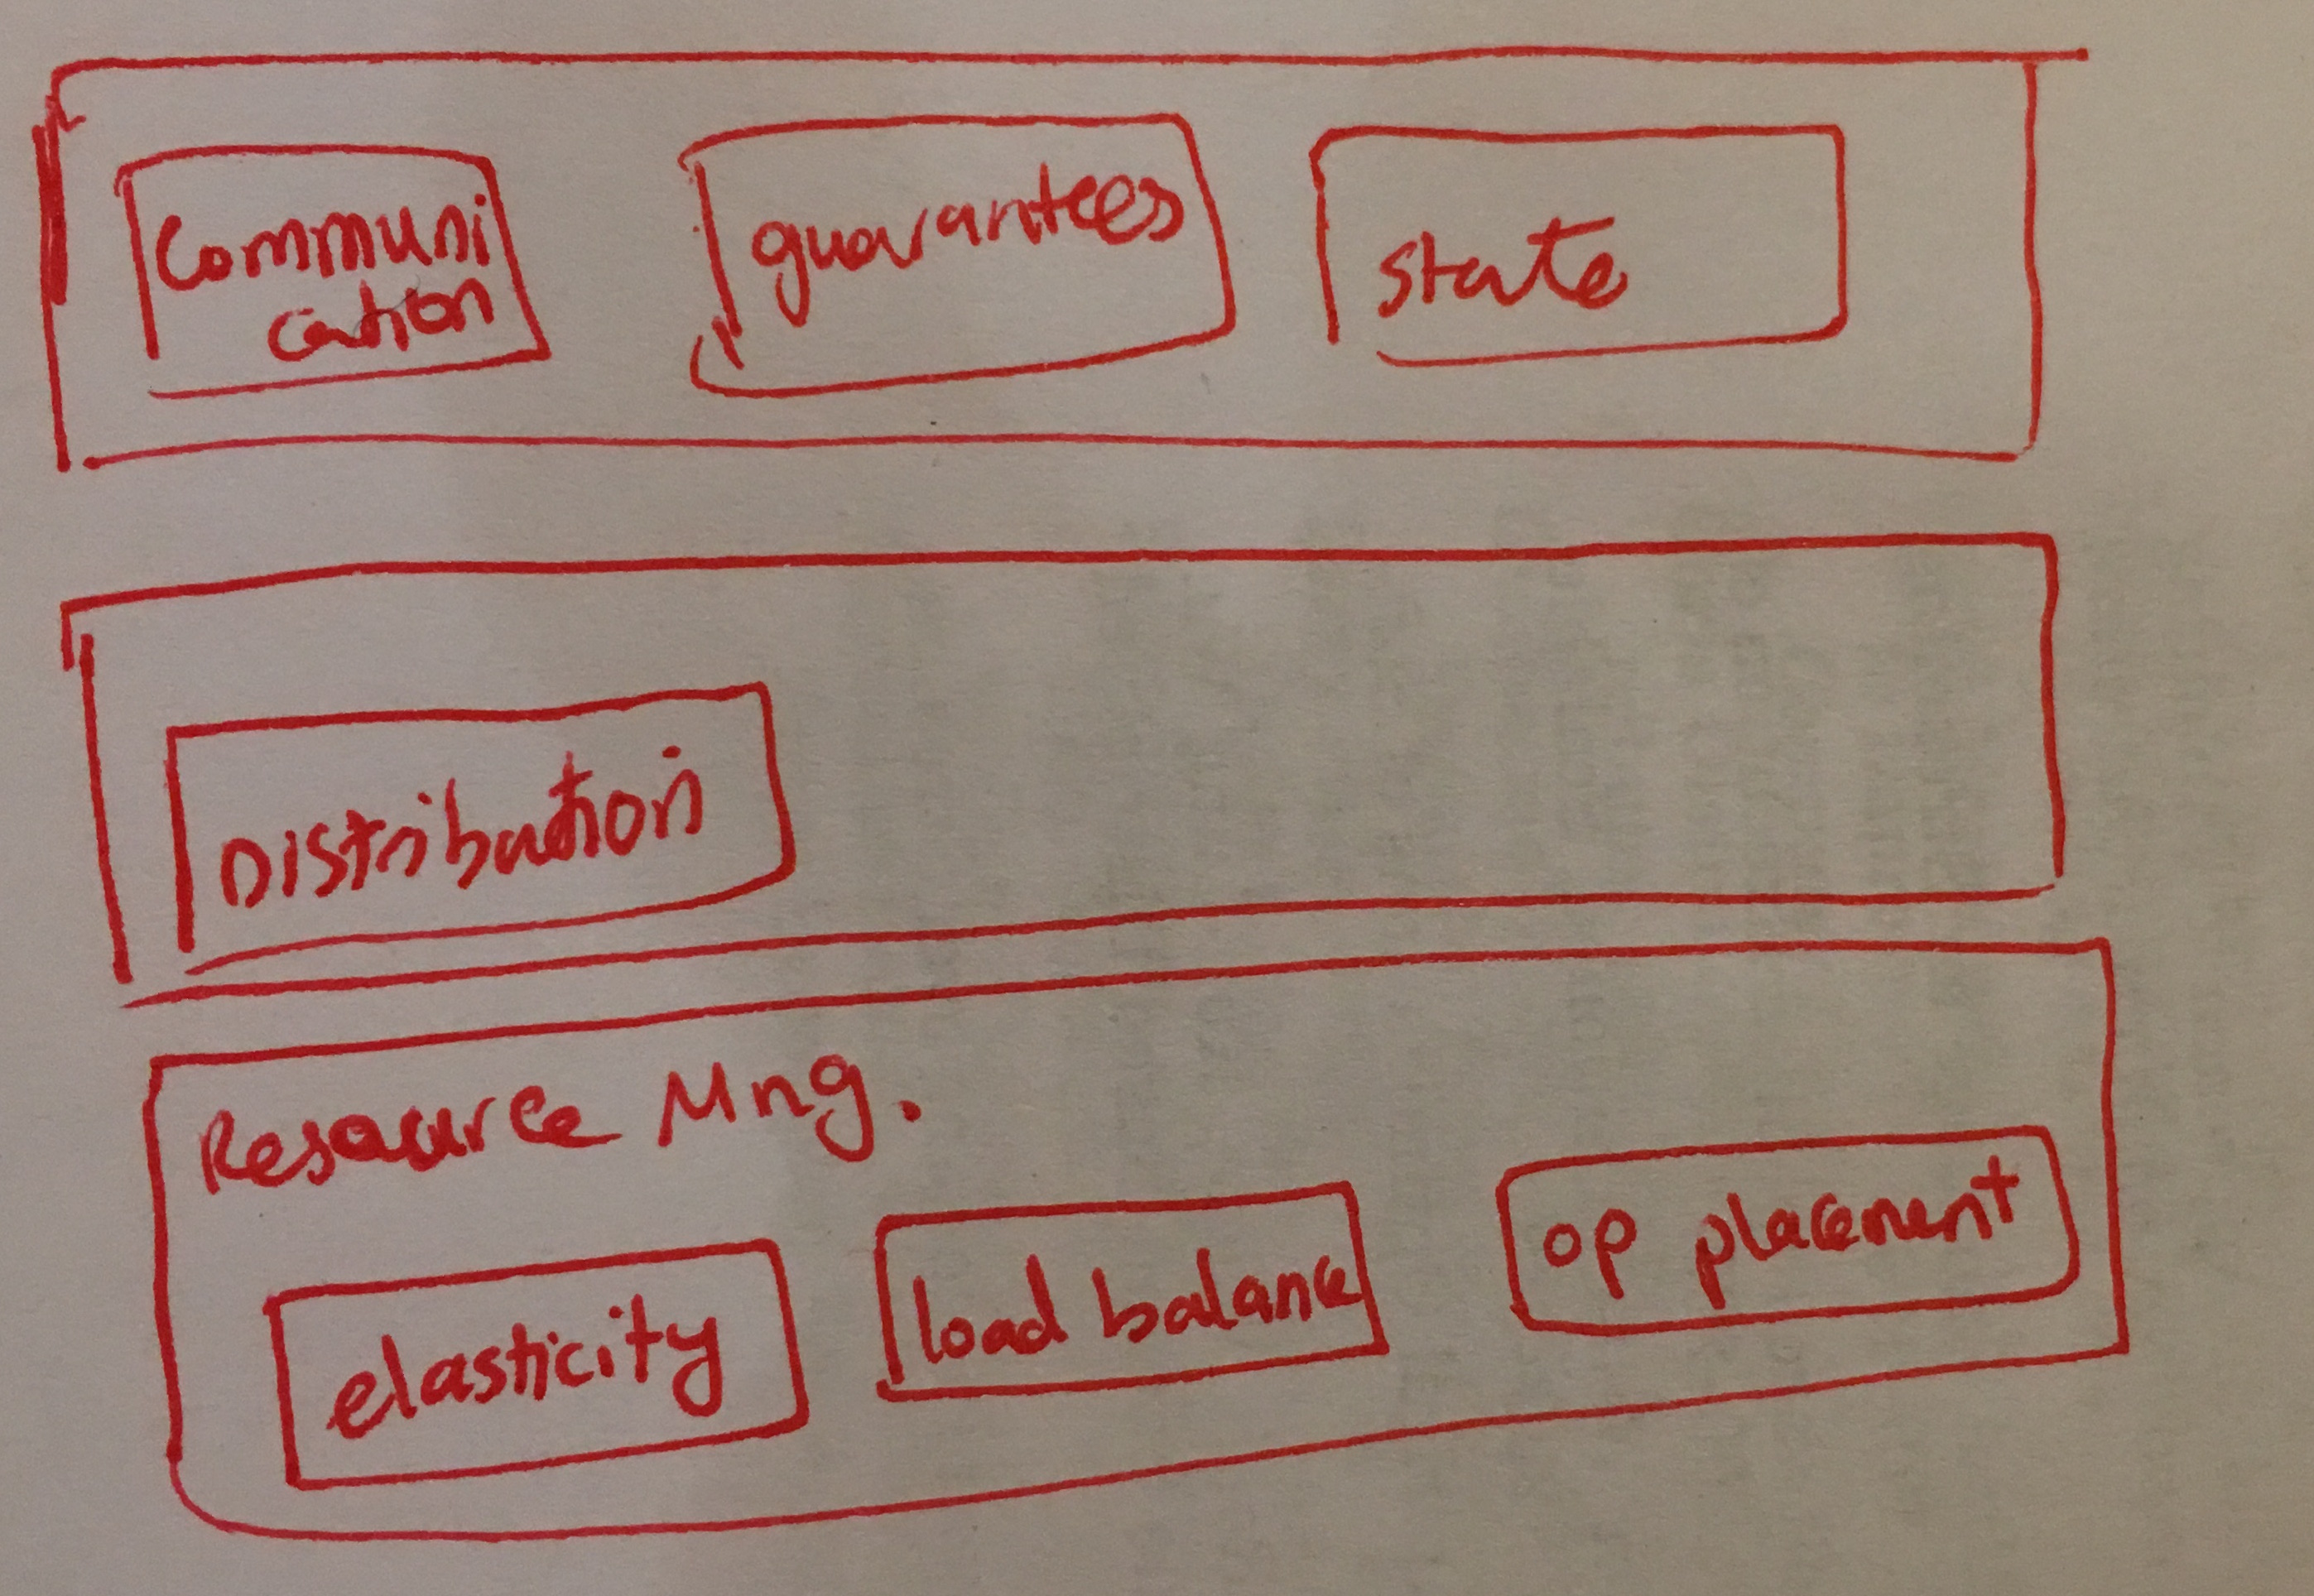 Communi
cation
guarantees
state
Distribution
Resource Mng.
elasticity
load balance
op placement